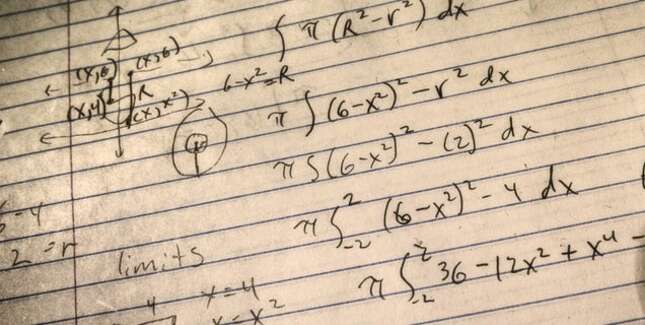 ∫ π (R² - r²) dx
(x,6) (x,6)
6-x² = R
R
(x,4) (x,x²)
π ∫ (6-x²)² - r² dx
π ∫ (6-x²)² - (2)² dx
6-4
2 = r
π ∫₋₂² (6-x²)² - 4 dx
limits
π ∫₋₂² 36 - 12x² + x⁴ -
y=4
y=x²
4